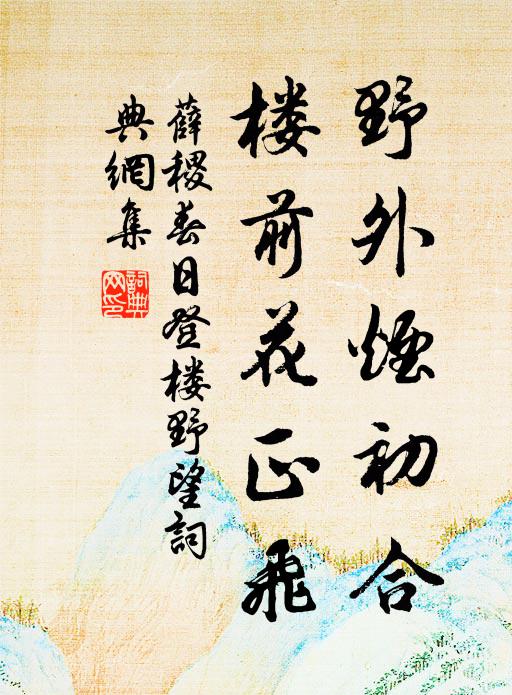 野外煙初合
楼前花正飛
薛稷春日登楼野望詞
典網集
詞典
网印